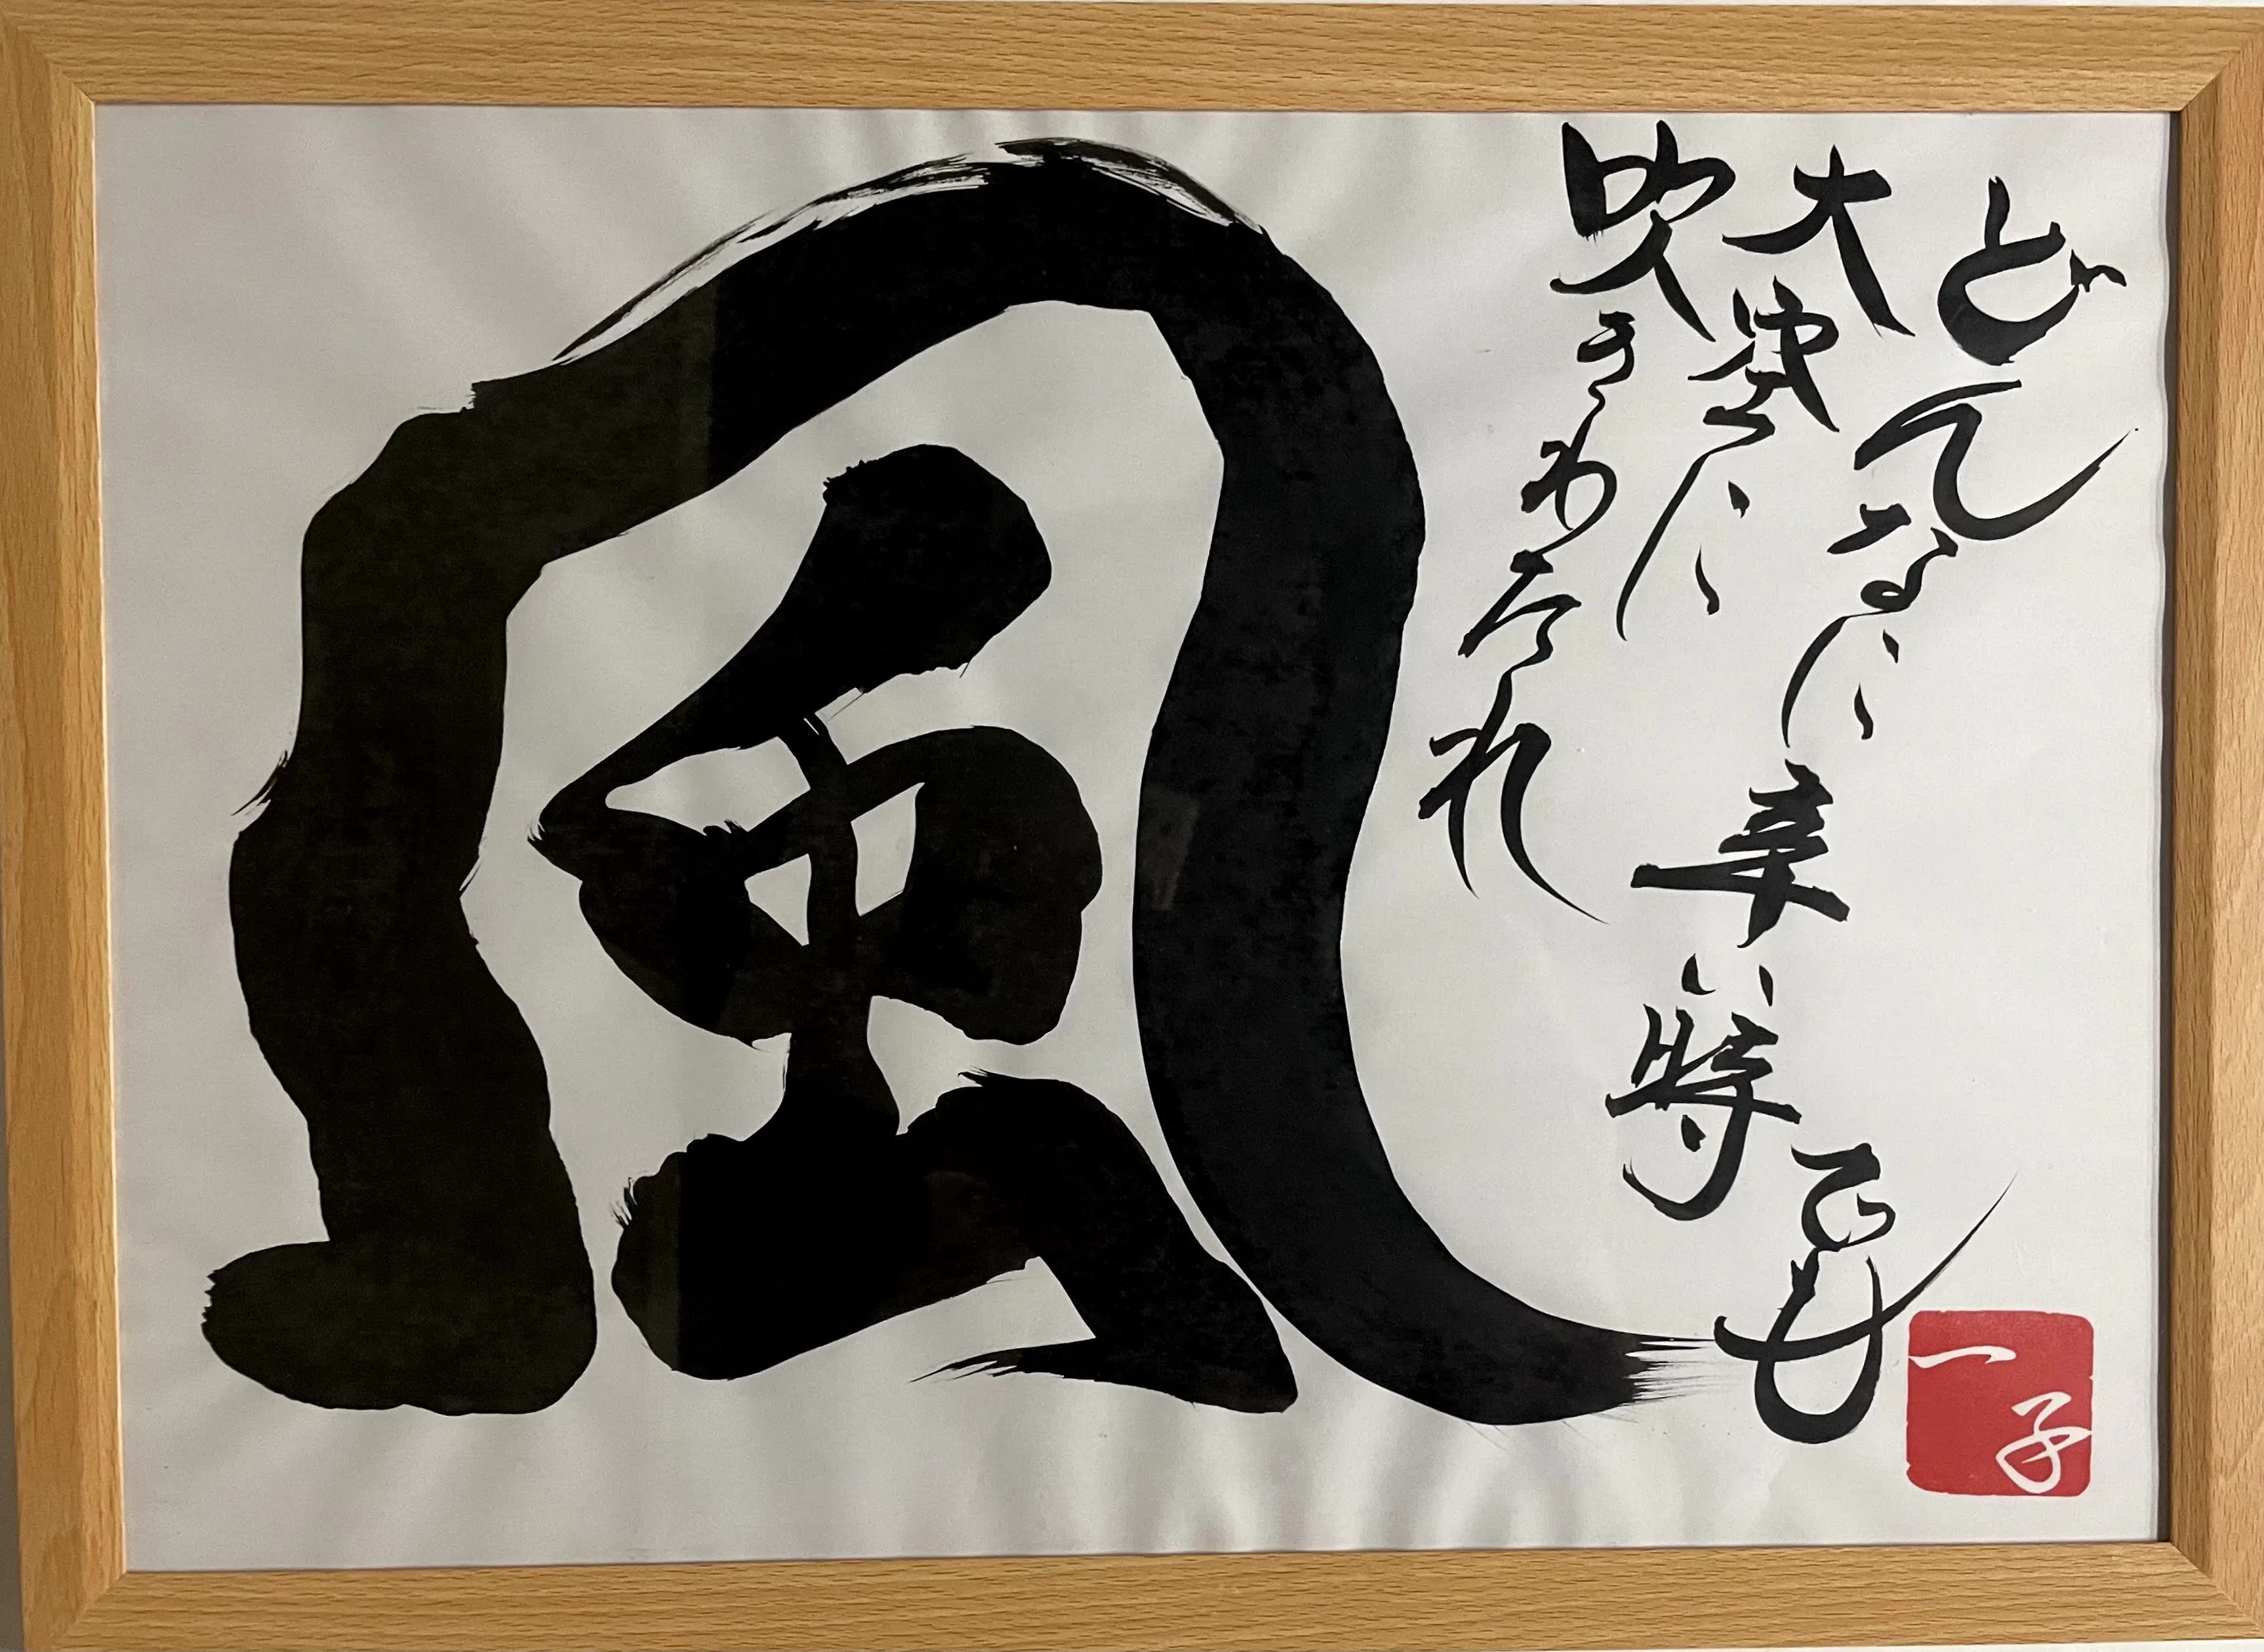 どんなに辛い時でも
大空に
吹きわたれ
風
一子